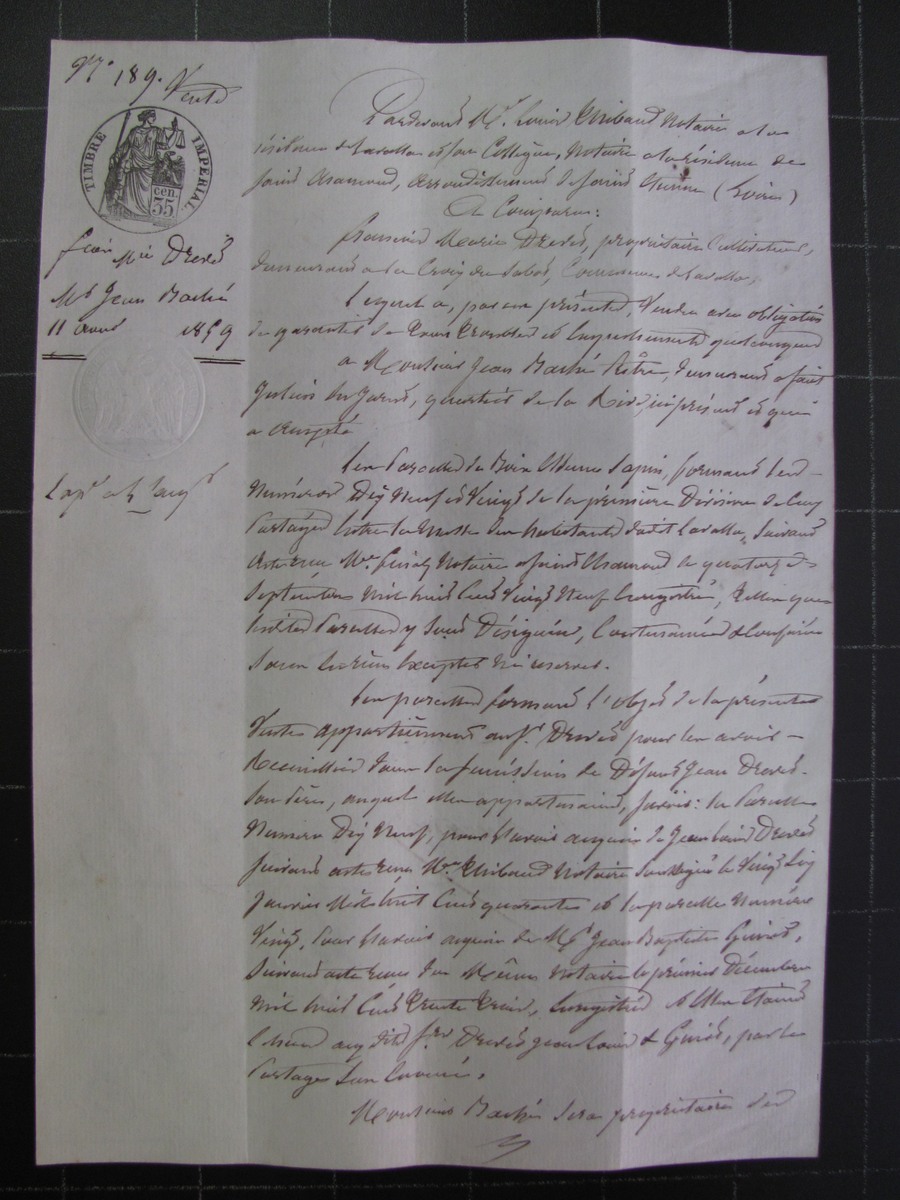 N° 189. Vente
TIMBRE IMPERIAL
35 cen.
11 1859
Pardevant Me. Louis Thibaud Notaire à la
résidence de Lavalla et son Collègue, Notaire à la résidence de
Saint Chamond, arrondissement de Saint Etienne (Loire)
A Comparu:
François Marie propriétaire Cultivateur,
demeurant à la Croix du Commune de Lavalla,
Lequel a, par ces présentes, Vendu avec obligation
de garantie de tous troubles et empêchements quelconques
à Monsieur Jean Prêtre, demeurant à Saint
Julien en Jarret, quartier de la Rive, ici présent et qui
a accepté
Les Parcelles de Bois Sapin, formant les
Numéros Dix Neuf et Vingt de la première Division de
Partages entre la Masse des habitants dudit Lavalla, Suivant
acte reçu Me. Notaire à Saint Chamond le quatorze
Septembre Mil huit Cent Vingt Neuf Enregistré, telles que
lesdites Parcelles y Sont Désignées, Contenances et Confins
Sans en rien Excepter ni réserver.
Les parcelles formant l'objet de la présente
Vente appartiennent au Sr. pour les avoir
Recueillies dans la Succession de Défunt Jean
Son Père, auquel elles appartenaient, Savoir: la Parcelle
Numéro Dix Neuf, pour l'avoir acquise de Jean Louis
Suivant acte reçu Me. Thibaud Notaire Soussigné le Vingt Six
Janvier Mil huit Cent quarante et la parcelle Numéro
Vingt, pour l'avoir acquise de Mr. Jean Baptiste
Suivant acte reçu du Même Notaire le premier Décembre
Mil huit Cent Trente Trois, Enregistré
aux dits Srs. Jean Louis & par les
Partages Sus Enoncés.
Monsieur Sera propriétaire des